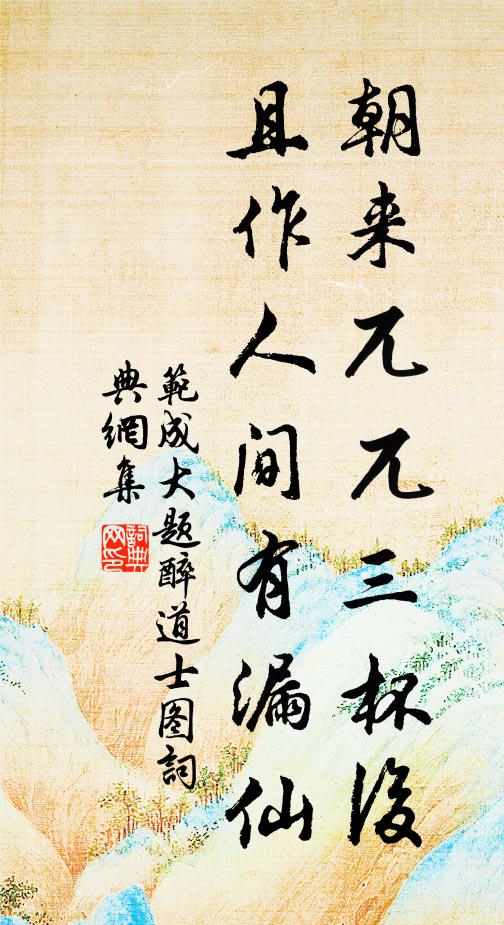 朝来兀兀三杯後
且作人间有漏仙
範成大题醉道士图詞
典網集
詞典
网印